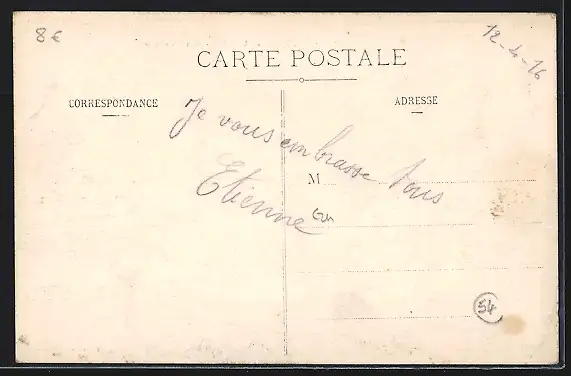 8 €
12-4-16
CARTE POSTALE
CORRESPONDANCE
ADRESSE
Je vous embrasse tous
M
Etienne
54